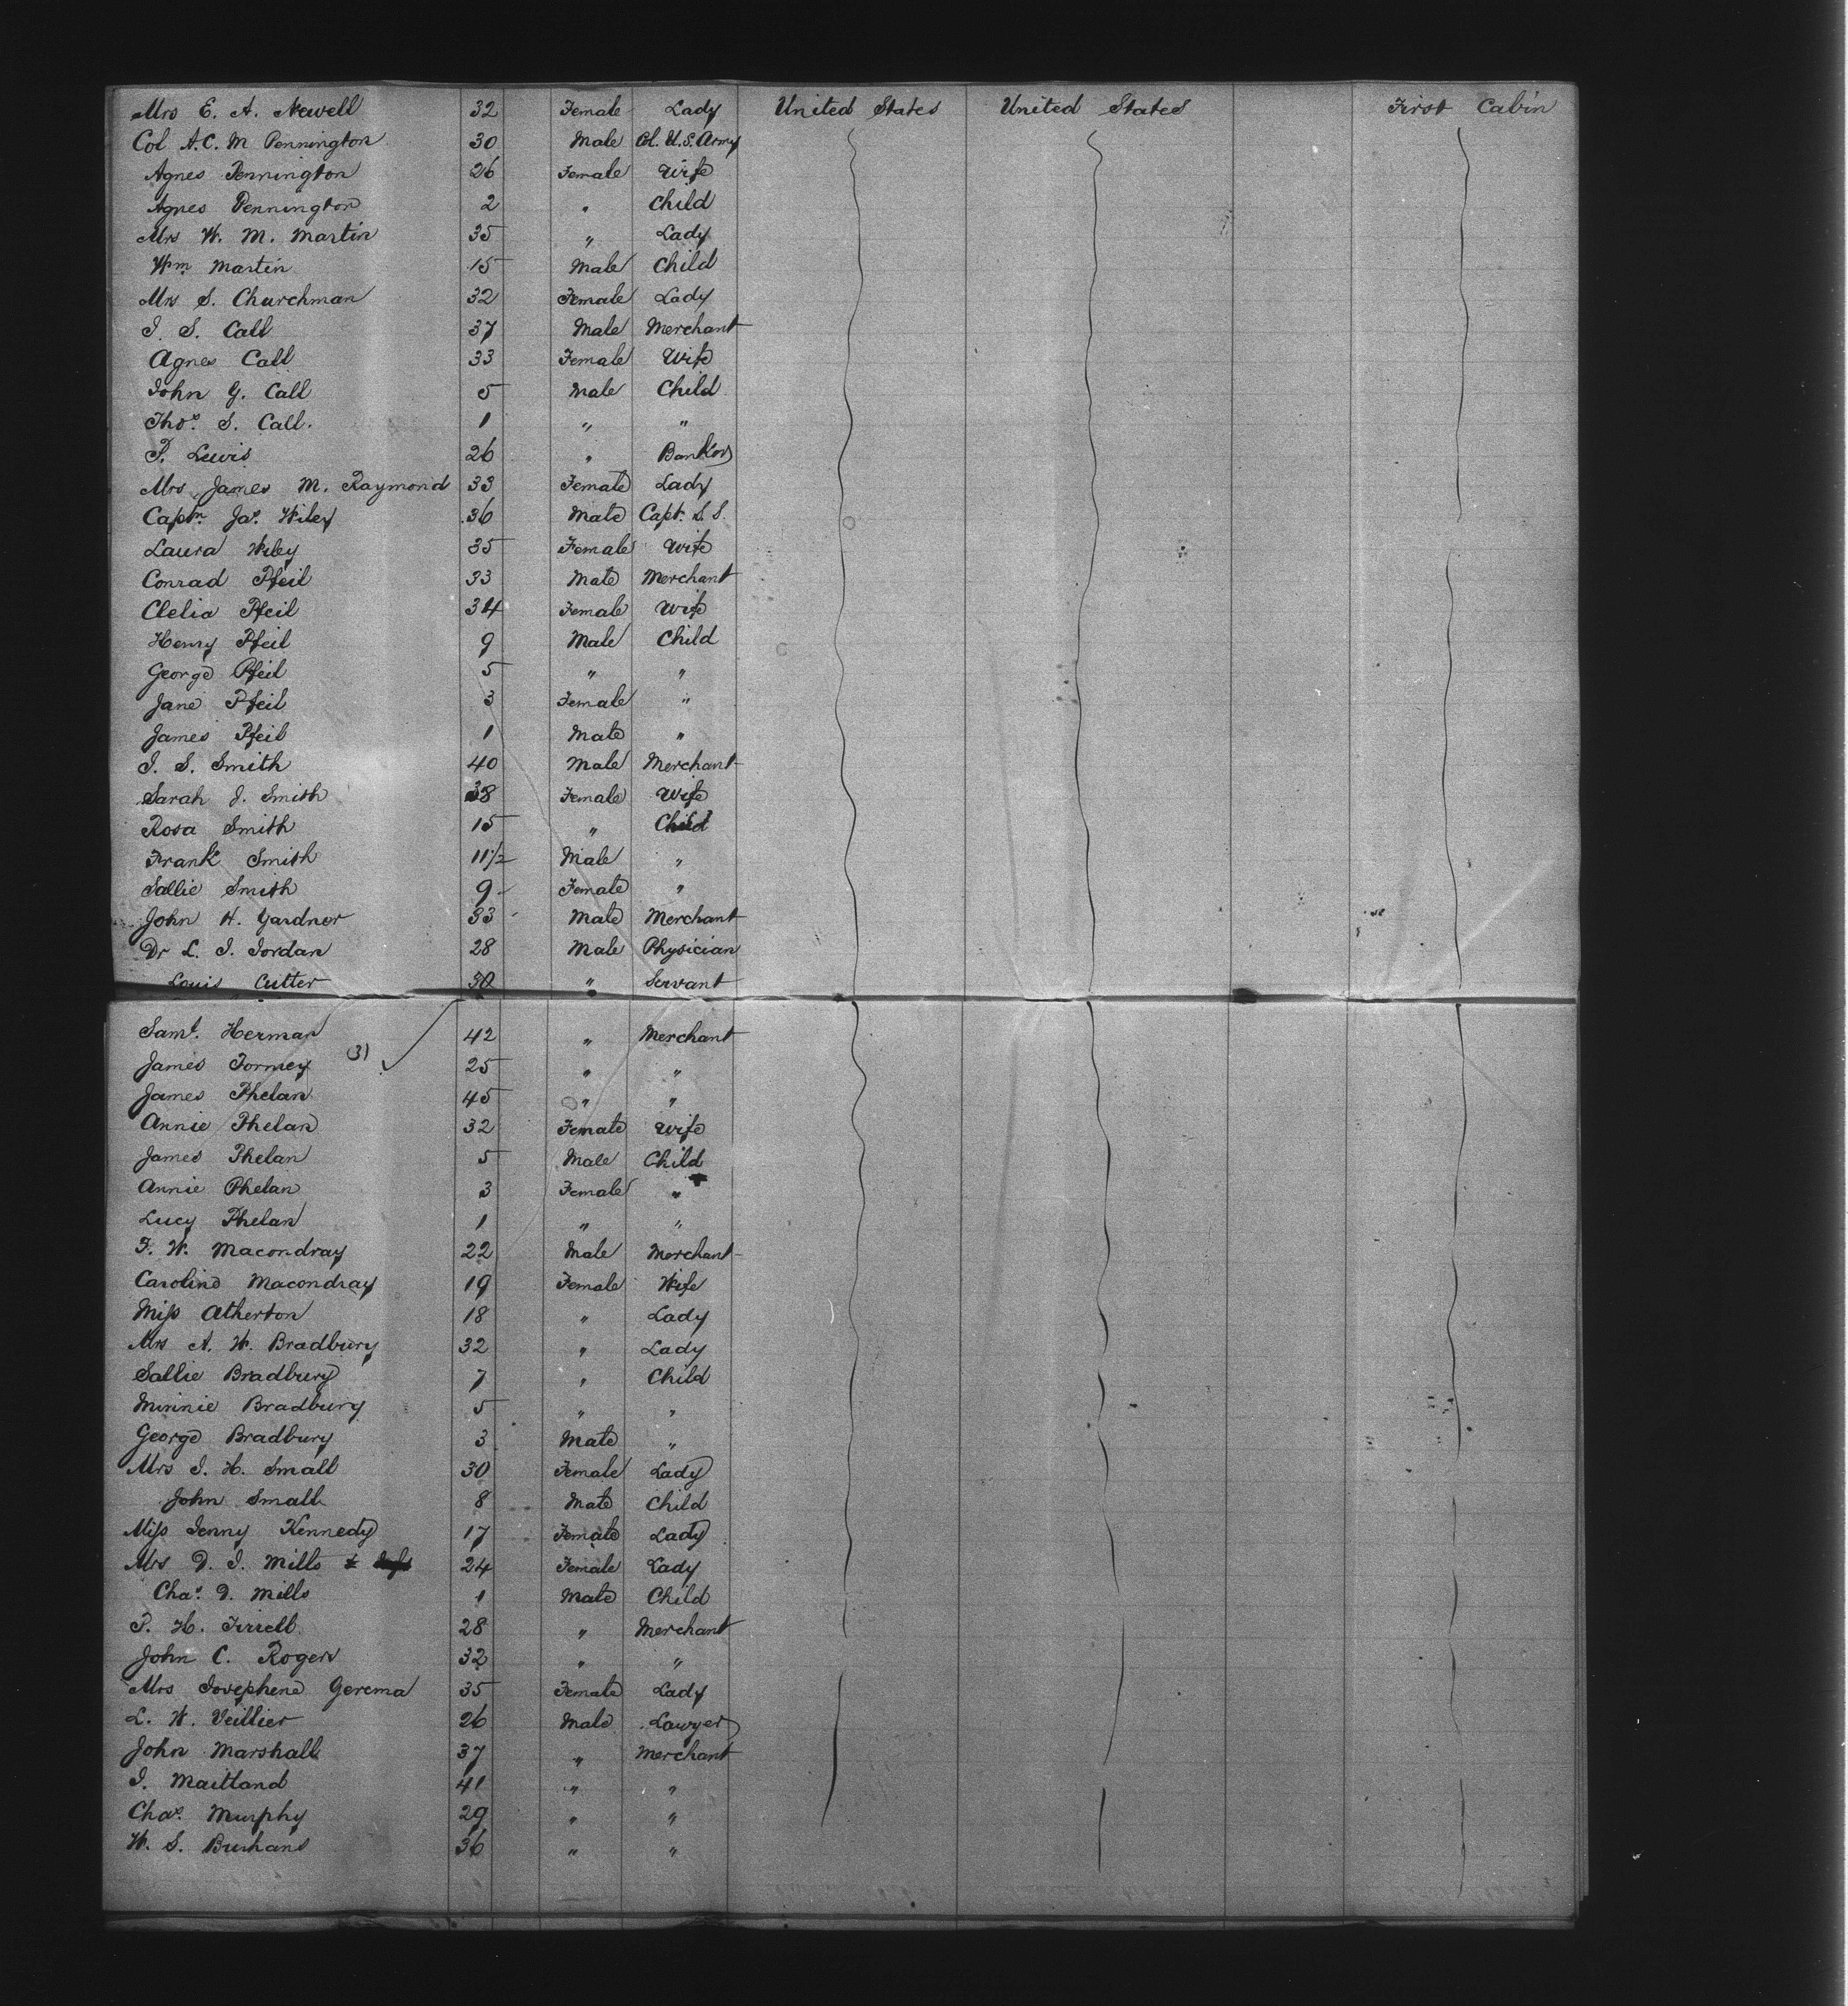 Mrs E. A. Newell 32 Female Lady United States United States First Cabin
Col A. C. M Pennington 30 Male Col. U.S. Army
Agnes Pennington 26 Female Wife
Agnes Pennington 2 " Child
Mrs W. M. Martin 35 " Lady
Wm Martin 15 Male Child
Mrs S. Churchman 32 Female Lady
I. S. Call 37 Male Merchant
Agnes Call 33 Female Wife
John G. Call 5 Male Child
Thos. S. Call. 1 " "
P. Lewis 26 " Banker
Mrs James M. Raymond 33 Female Lady
Captn. Jas. Wiley 36 Male Capt. S S.
Laura Wiley 35 Female Wife
Conrad Pfeil 33 Male Merchant
Clelia Pfeil 34 Female Wife
Henry Pfeil 9 Male Child
George Pfeil 5 " "
Jane Pfeil 3 Female "
James Pfeil 1 Male "
I. S. Smith 40 Male Merchant
Sarah J. Smith 38 Female Wife
Rosa Smith 15 " Child
Frank Smith 11 1/2 Male "
Sallie Smith 9 Female "
John H. Gardner 33 Male Merchant
Dr L. I. Jordan 28 Male Physician
Louis Cutter 30 " Servant
Saml. Herman 42 " Merchant
James Tormey (3) 25 " "
James Phelan 45 " "
Annie Phelan 32 Female Wife
James Phelan 5 Male Child
Annie Phelan 3 Female "
Lucy Phelan 1 " "
F. W. Macondray 22 Male Merchant
Caroline Macondray 19 Female Wife
Miss Atherton 18 " Lady
Mrs A. W. Bradbury 32 " Lady
Sallie Bradbury 7 " Child
Minnie Bradbury 5 " "
George Bradbury 3 Male "
Mrs I. H. Small 30 Female Lady
John Small 8 Male Child
Miss Jenny Kennedy 17 Female Lady
Mrs D. I. Mills 24 Female Lady
Chas. D. Mills 1 Male Child
P. H. Tirrell 28 " Merchant
John C. Rogers 32 " "
Mrs Josephene Gerema 35 Female Lady
L. W. Veillier 26 Male Lawyer
John Marshall 37 " Merchant
I. Maitland 41 " "
Chas. Murphy 29 " "
W. S. 36 " "